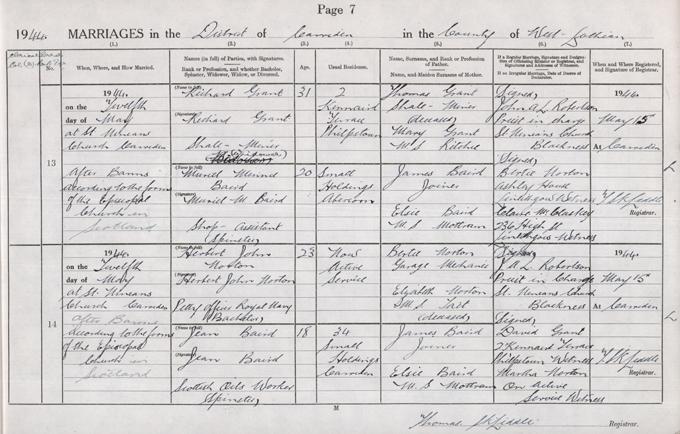 Page 7
1944. MARRIAGES in the District of Camden in the County of West-Lothian
(1.) (2.) (3.) (4.) (5.) (6.) (7.)
No.
When, Where, and How Married.
Names (in full) of Parties, with Signatures.
Rank or Profession, and whether Bachelor, Spinster, Widower, Widow, or Divorced.
Age.
Usual Residence.
Name, Surname, and Rank or Profession of Father.
Name, and Maiden Surname of Mother.
If a Regular Marriage, Signature and Designation of Officiating Minister or Registrar, and Signatures and Addresses of Witnesses.
If an Irregular Marriage, Date of Decree or Declarator.
When and Where Registered, and Signature of Registrar.
13
1944.
on the Twelfth
day of May
at St Ninians
Church Camsden
After Banns
according to the forms
of the Episcopal
Church in
Scotland
(Name in full)
Richard Grant
(Signature)
Richard Grant
Shale-Miner
(Widower)
31
2
Kennaird
Terrace
Philpstoun
Thomas Grant
Shale-Miner
(deceased)
Mary Grant
M.S. Ritchie
(Signed)
John A. L. Robertson
Priest in charge
St Ninians Church
Blackness
1944.
May 15
At Camsden
(Name in full)
Muriel Minnie
Baird
(Signature)
Muriel M. Baird
Shop-Assistant
(Spinster)
20
Small
Holdings
Abercorn
James Baird
Joiner
Elsie Baird
M.S. Mottram
(Signed)
Bertie Norton
Ashley House
Linlithgow Witness
Claire McClaskey
236 High St
Linlithgow Witness
T. S. K. Liddle
Registrar.
14
1944.
on the Twelfth
day of May
at St. Ninians
Church Camsden
After Banns
according to the forms
of the Episcopal
Church in
Scotland
(Name in full)
Herbert John
Norton
(Signature)
Herbert John Norton
Petty Officer Royal Navy
(Bachelor)
23
Now
Active
Service
Bertie Norton
Garage Mechanic
Elizabeth Norton
M.S. Tart
(deceased)
(Signed)
J. A. L. Robertson
Priest in Charge
St. Ninians Church
Blackness
1944.
May 15
At Camsden
(Name in full)
Jean Baird
(Signature)
Jean Baird
Scottish Oils Worker
(Spinster)
18
34
Small
Holdings
Camsden
James Baird
Joiner
Elsie Baird
M.S. Mottram
(Signed)
David Grant
2 Kennaird Terrace
Philpstoun Witness
Martha Norton
On Active
Service Witness
T. S. K. Liddle
Registrar.
M
Thomas S K Liddle Registrar.